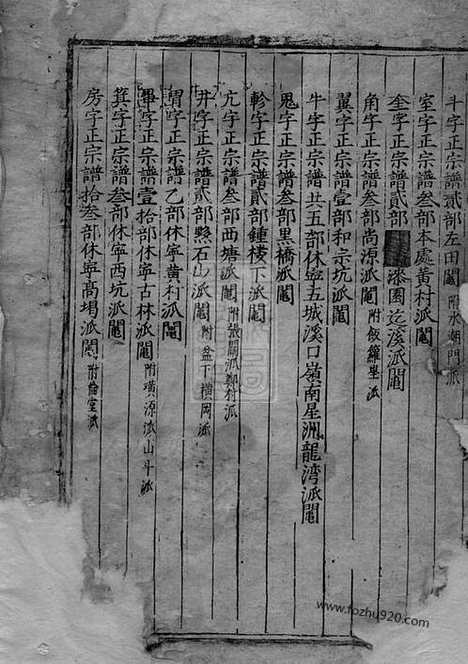 斗字正宗譜貳部左田闖附水朝門派
室字正宗譜叁部本處黃村派闖
奎字正宗譜貳部 漆園 溪派闖
角字正宗譜叁部尚源派闖附飯籮坐派
翼字正宗譜壹部和宗坑派闖
牛字正宗譜共五部休寧五城溪口嶺南星洲龍湾派闖
鬼字正宗譜叁部黑橋派闖
軫字正宗譜貳部鍾棱下派闖
亢字正宗譜叁部西塘派闖附張闖派鄭村派
井字正宗譜貳部黟石山派闖附盆下橫岡派
胃字正宗譜乙部休寧黃村派闖
畢字正宗譜壹拾部休寧古林派闖附璜源派山斗派
箕字正宗譜叁部休寧西坑派闖
房字正宗譜拾叁部休寧高堨派闖附倫堂派
www.fozhu920.com